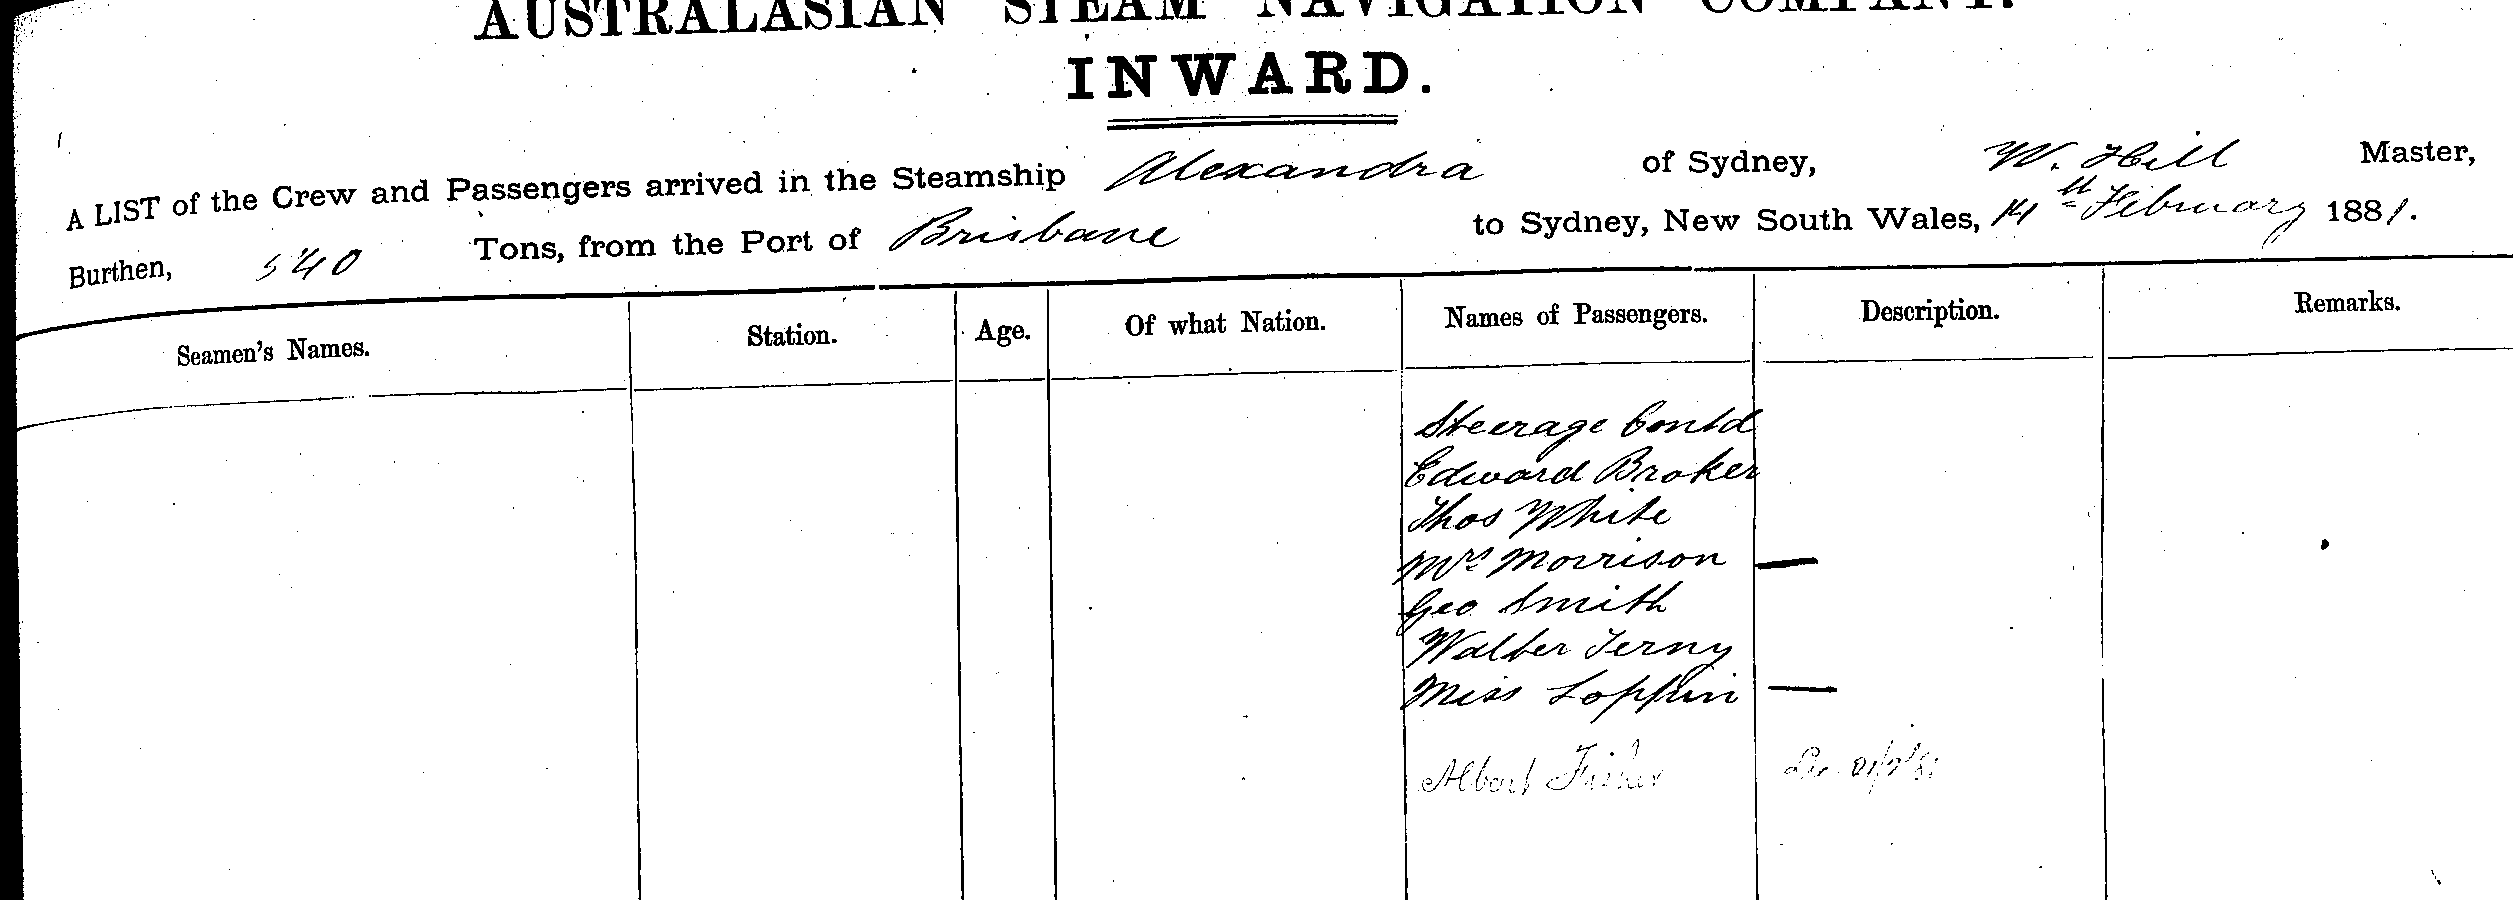 AUSTRALASIAN STEAM NAVIGATION COMPANY.
INWARD.
A LIST of the Crew and Passengers arrived in the Steamship Alexandra of Sydney, W. Hill Master,
Burthen, 540 Tons, from the Port of Brisbane to Sydney, New South Wales, 14th February 1881.
Seamen's Names. Station. Age. Of what Nation. Names of Passengers. Description. Remarks.
Steerage Contd
Edward Broker
Thos White
Mrs Morrison —
Geo Smith
Walter Terny
Miss Lopkin —
Albert Fisher